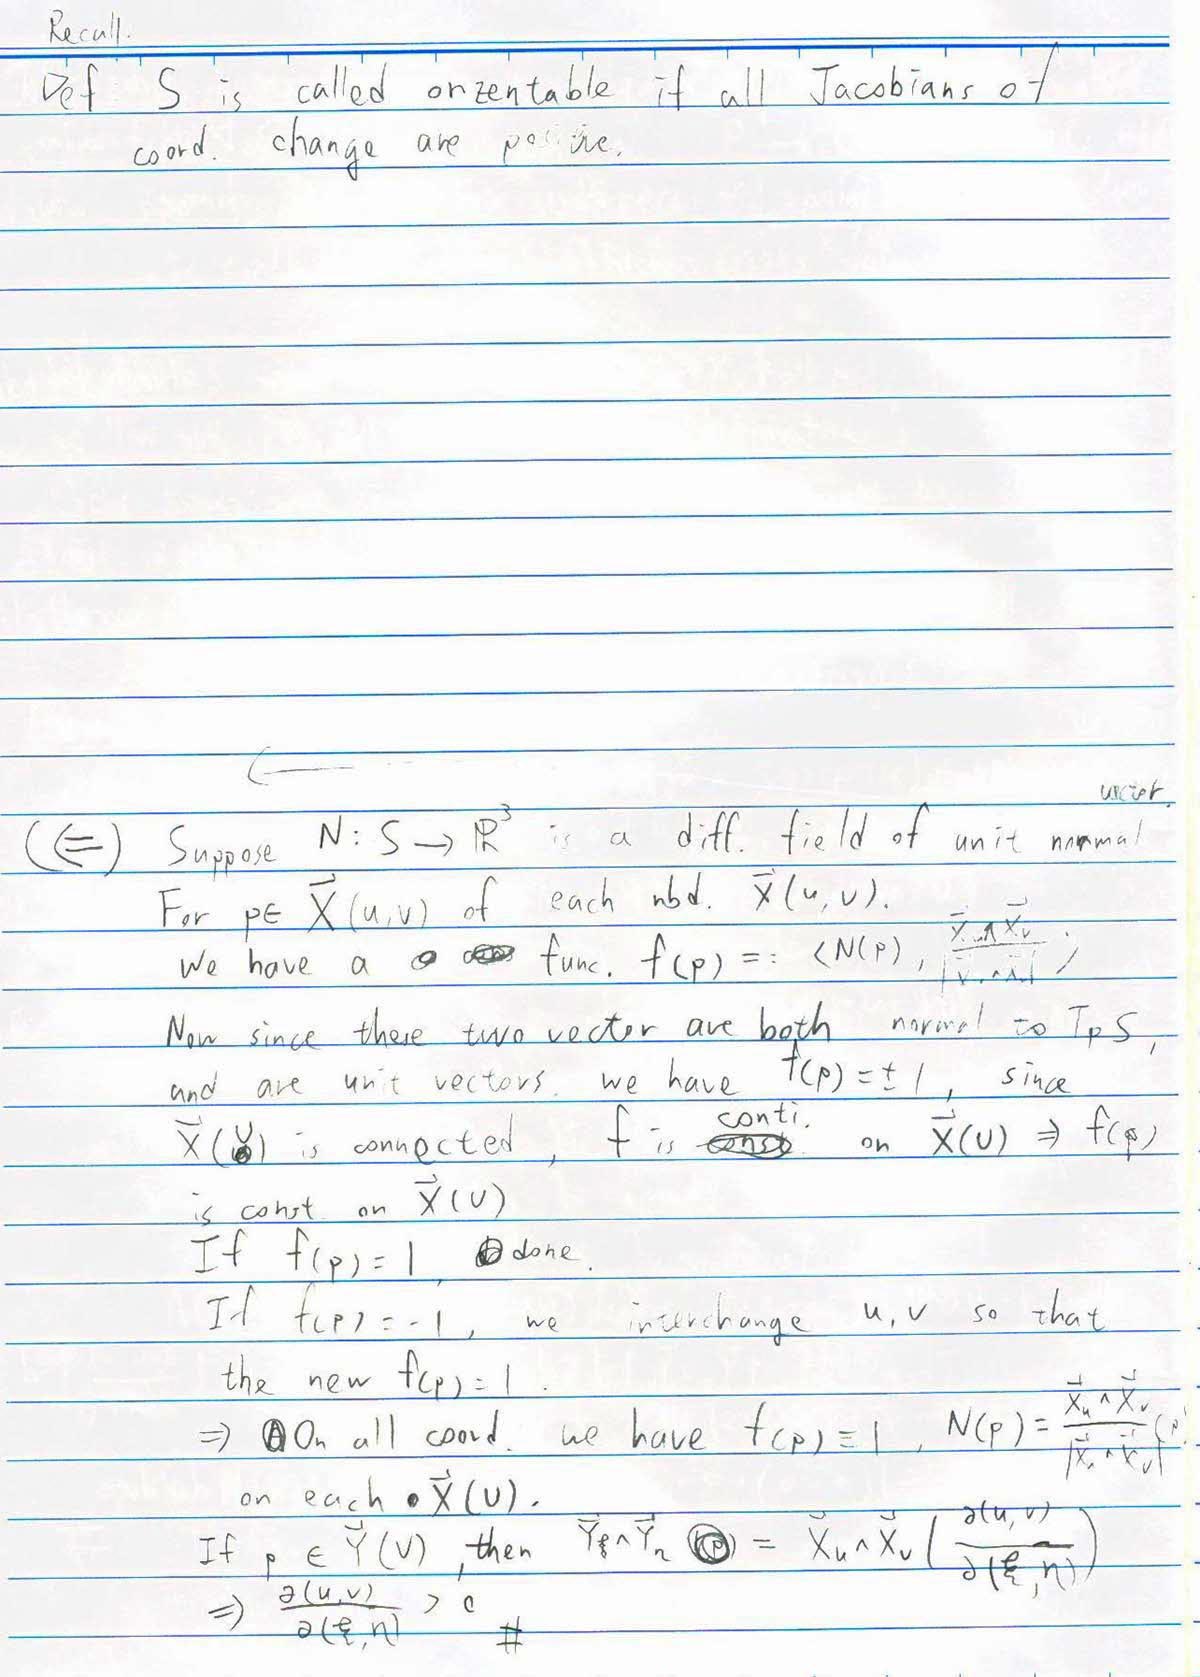 Recall.
Def S is called orientable if all Jacobians of
coord. change are positive.
vector.
(⇐) Suppose N: S → ℝ³ is a diff. field of unit normal
For p∈ X⃗(u,v) of each nbd. X⃗(u,v).
We have a func. f(p) =: ⟨N(p), X⃗u ∧ X⃗v / |X⃗u ∧ X⃗v|⟩
Now since these two vector are both normal to TpS,
and are unit vectors. we have f(p) = ± 1, since
X⃗(U) is connected, f is conti. on X⃗(U) ⇒ f(p)
is const on X⃗(U)
If f(p) = 1, done.
If f(p) = -1, we interchange u, v so that
the new f(p) = 1.
⇒ On all coord. we have f(p) ≡ 1, N(p) = X⃗u ∧ X⃗v / |X⃗u ∧ X⃗v| (p)
on each X⃗(U).
If p ∈ Y⃗(V), then Y⃗ξ ∧ Y⃗η = X⃗u ∧ X⃗v (∂(u,v) / ∂(ξ,η))
⇒ ∂(u,v) / ∂(ξ,η) > 0 #